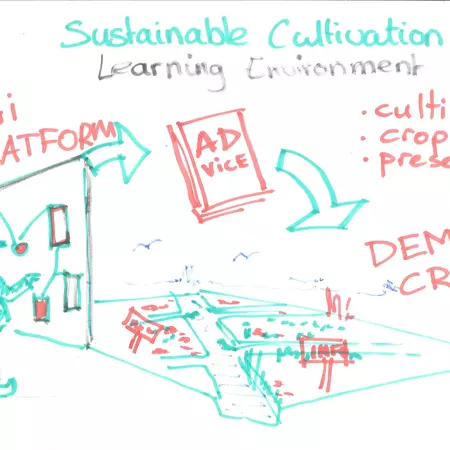 Sustainable Cultivation
Learning Environment
i
ATFORM
AD
VICE
• culti
• crop
• prese
DEM
CR
INFO